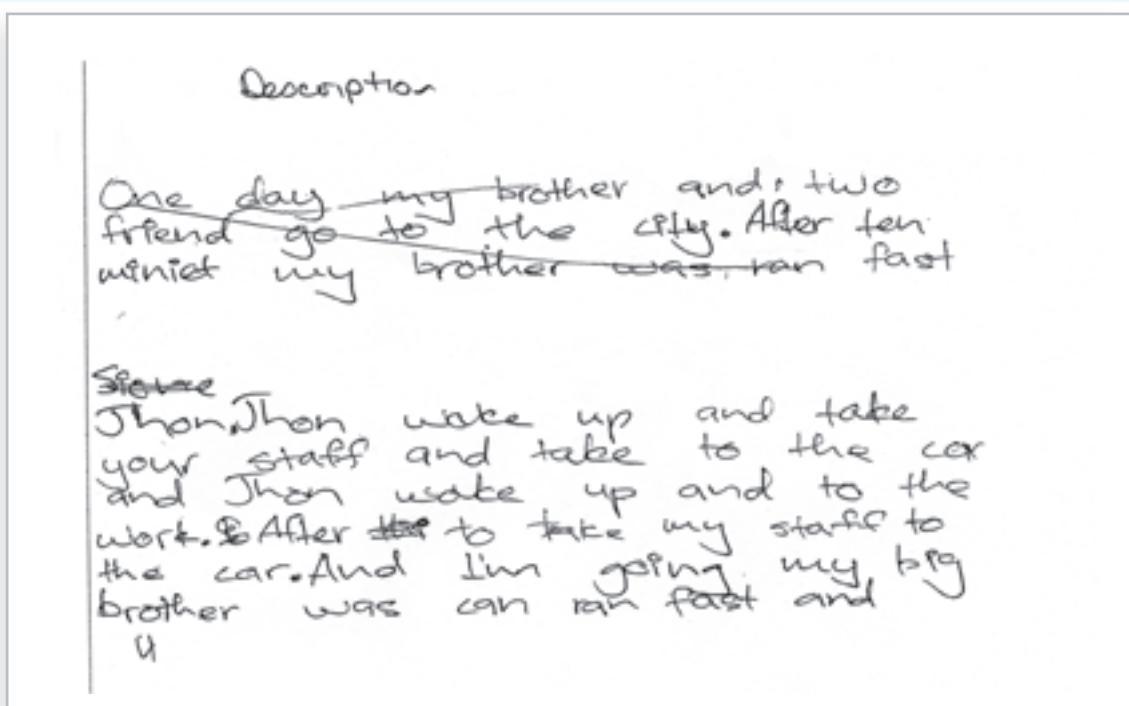 Description
One day my brother and two
friend go to the city. After ten
miniet my brother was ran fast
Jhon, Jhon wake up and take
your staff and take to the car
and Jhon wake up and to the
work. After to take my staff to
the car. And I'm going my big
brother was can ran fast and